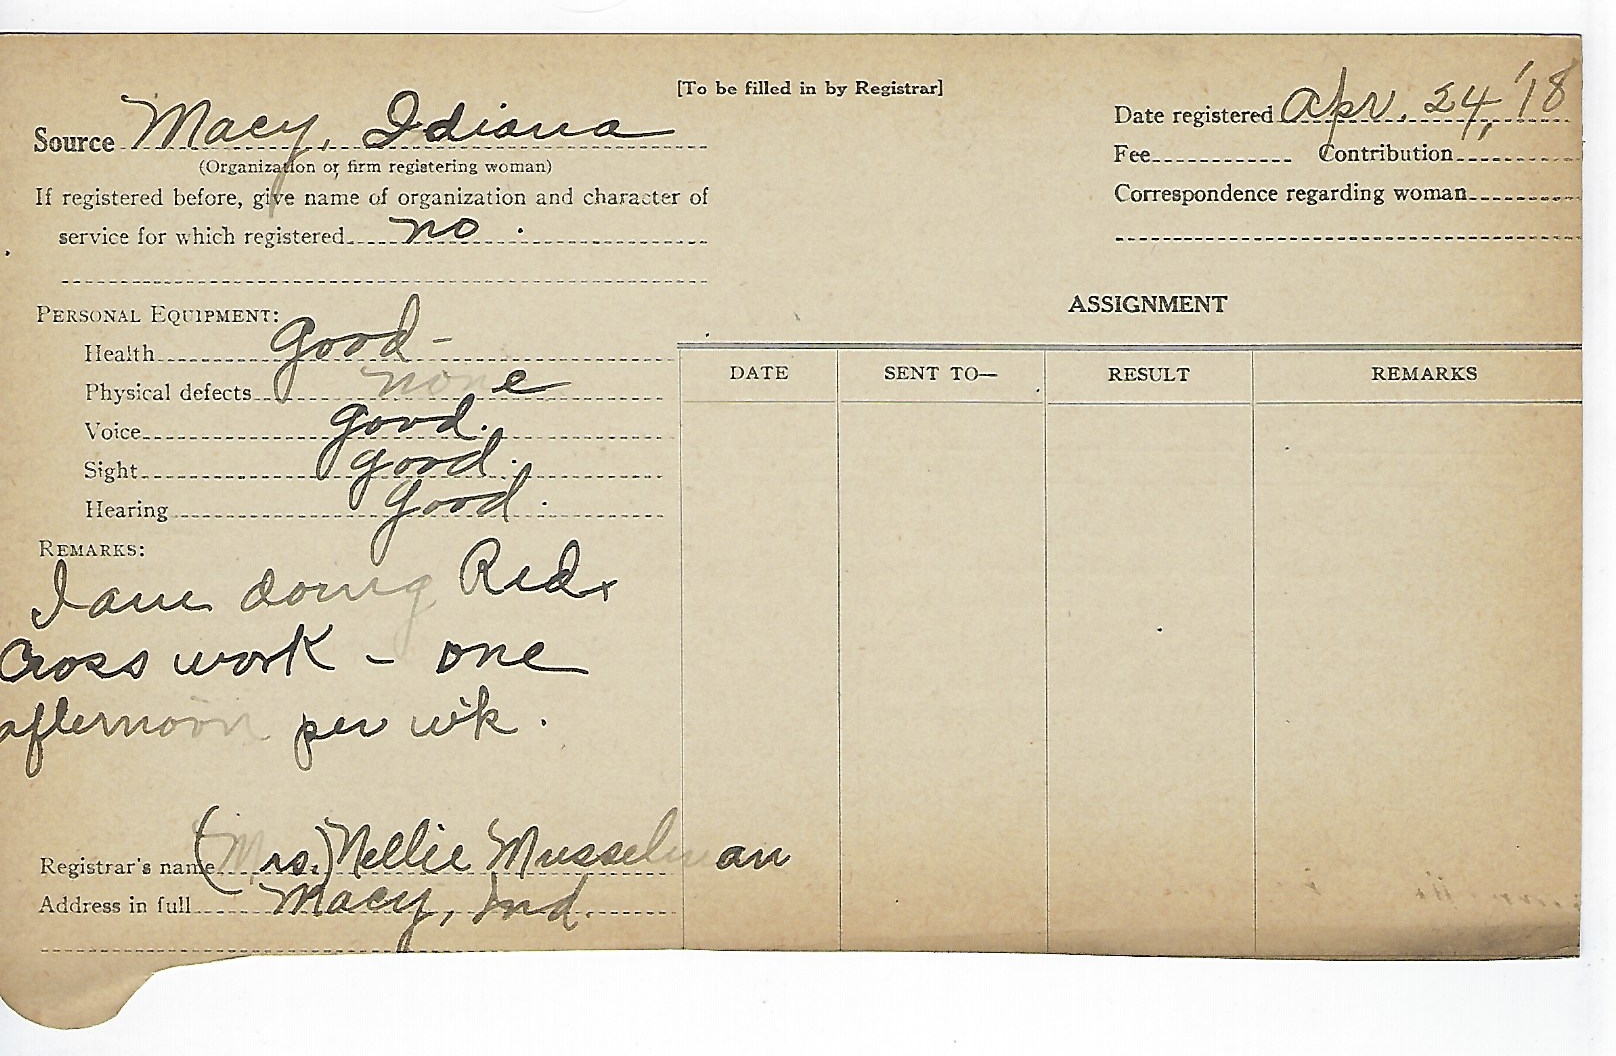 [To be filled in by Registrar]
Source Macy, Idiana
(Organization or firm registering woman)
If registered before, give name of organization and character of
service for which registered no.
Date registered Apr. 24, '18
Fee Contribution
Correspondence regarding woman
PERSONAL EQUIPMENT:
Health good -
Physical defects none
Voice good.
Sight good.
Hearing good.
REMARKS:
I am doing Red
Cross work - one
afternoon per wk.
Registrar's name (Mrs.) Nellie Musselman
Address in full Macy, Ind.
ASSIGNMENT
DATE SENT TO— RESULT REMARKS